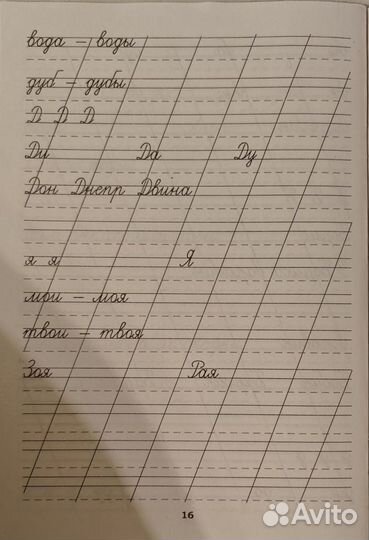 вода – воды
дуб – дубы
Д Д Д
Ди Да Ду
Дон Днепр Двина
я я Я
мои – моя
твои – твоя
Зоя Рая
16
Avito